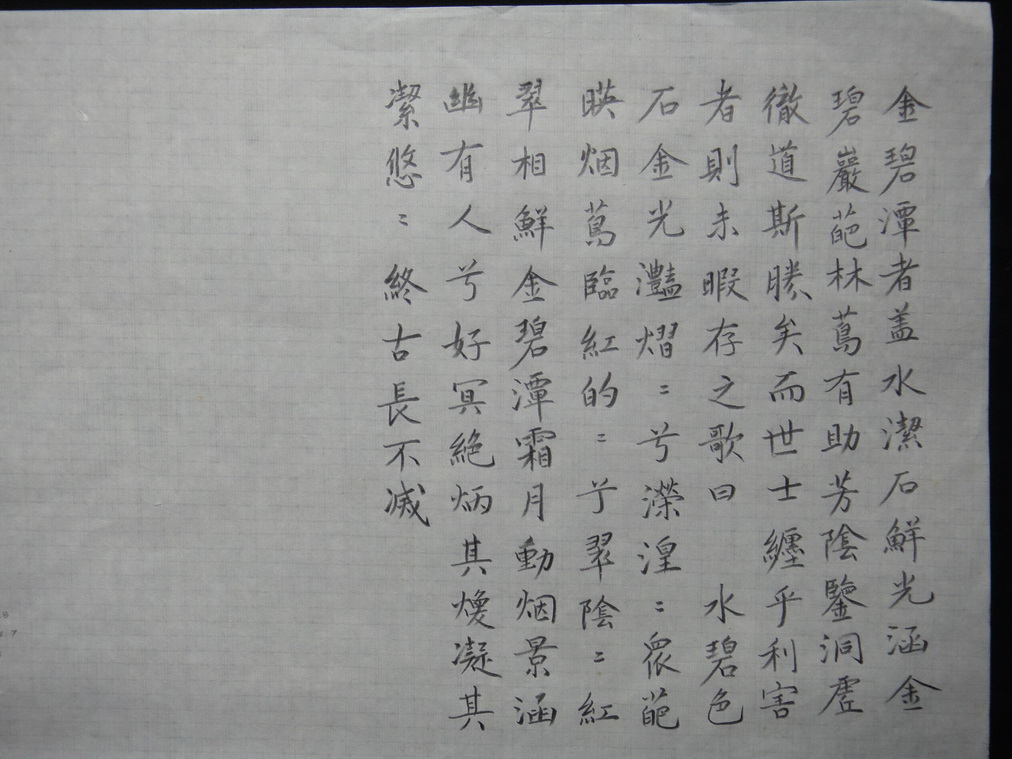 金碧潭者盖水潔石鮮光涵金
碧巖葩林蔦有助芳陰鑒洞虚
徹道斯勝矣而世士纏乎利害
者則未暇存之歌曰 水碧色
石金光灔熠〻兮濴湟〻衆葩
暎烟蔦臨紅的〻兮翠陰〻紅
翠相鮮金碧潭霜月動烟景涵
幽有人兮好冥絶炳其煥凝其
潔悠〻終古長不滅